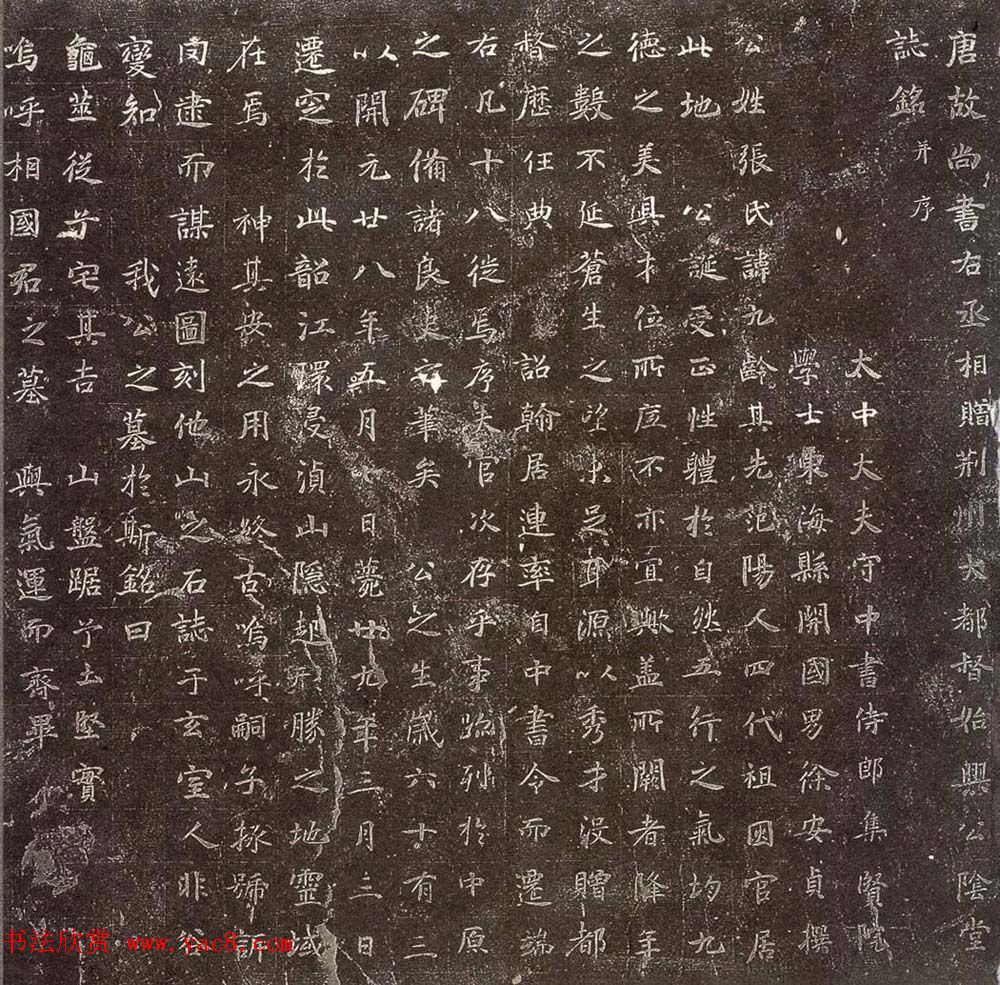 唐故尚書右丞相贈荊州大都督始興公陰堂
誌銘并序
太中大夫守中書侍郎集賢院
學士東海縣開國男徐安貞撰
公姓張氏諱九齡其先范陽人四代祖因官居
此地公誕受正性體於自然五行之氣均九
德之美具才位所底不亦宜歟蓋所闕者降年
之數不延蒼生之望未足耳源以秀才沒贈都
督歷任典詔翰居連率自中書令而遷端
右凡十八徙焉序夫官次存乎事跡列於中原
之碑備諸良史之筆矣公之生歲六十有三
以開元廿八年五月七日薨廿九年三月三日
遷窆於此韶江環浸湞山隱起形勝之地靈域
在焉神其安之用永終古嗚呼嗣子拯號訴
罔逮而謀遠圖刻他山之石誌于玄室人非谷
變知我公之墓於斯銘曰
龜筮從兮宅其吉山盤踞兮土堅實
嗚呼相國君之墓與氣運而齊畢
书法欣赏 www.yac8.com